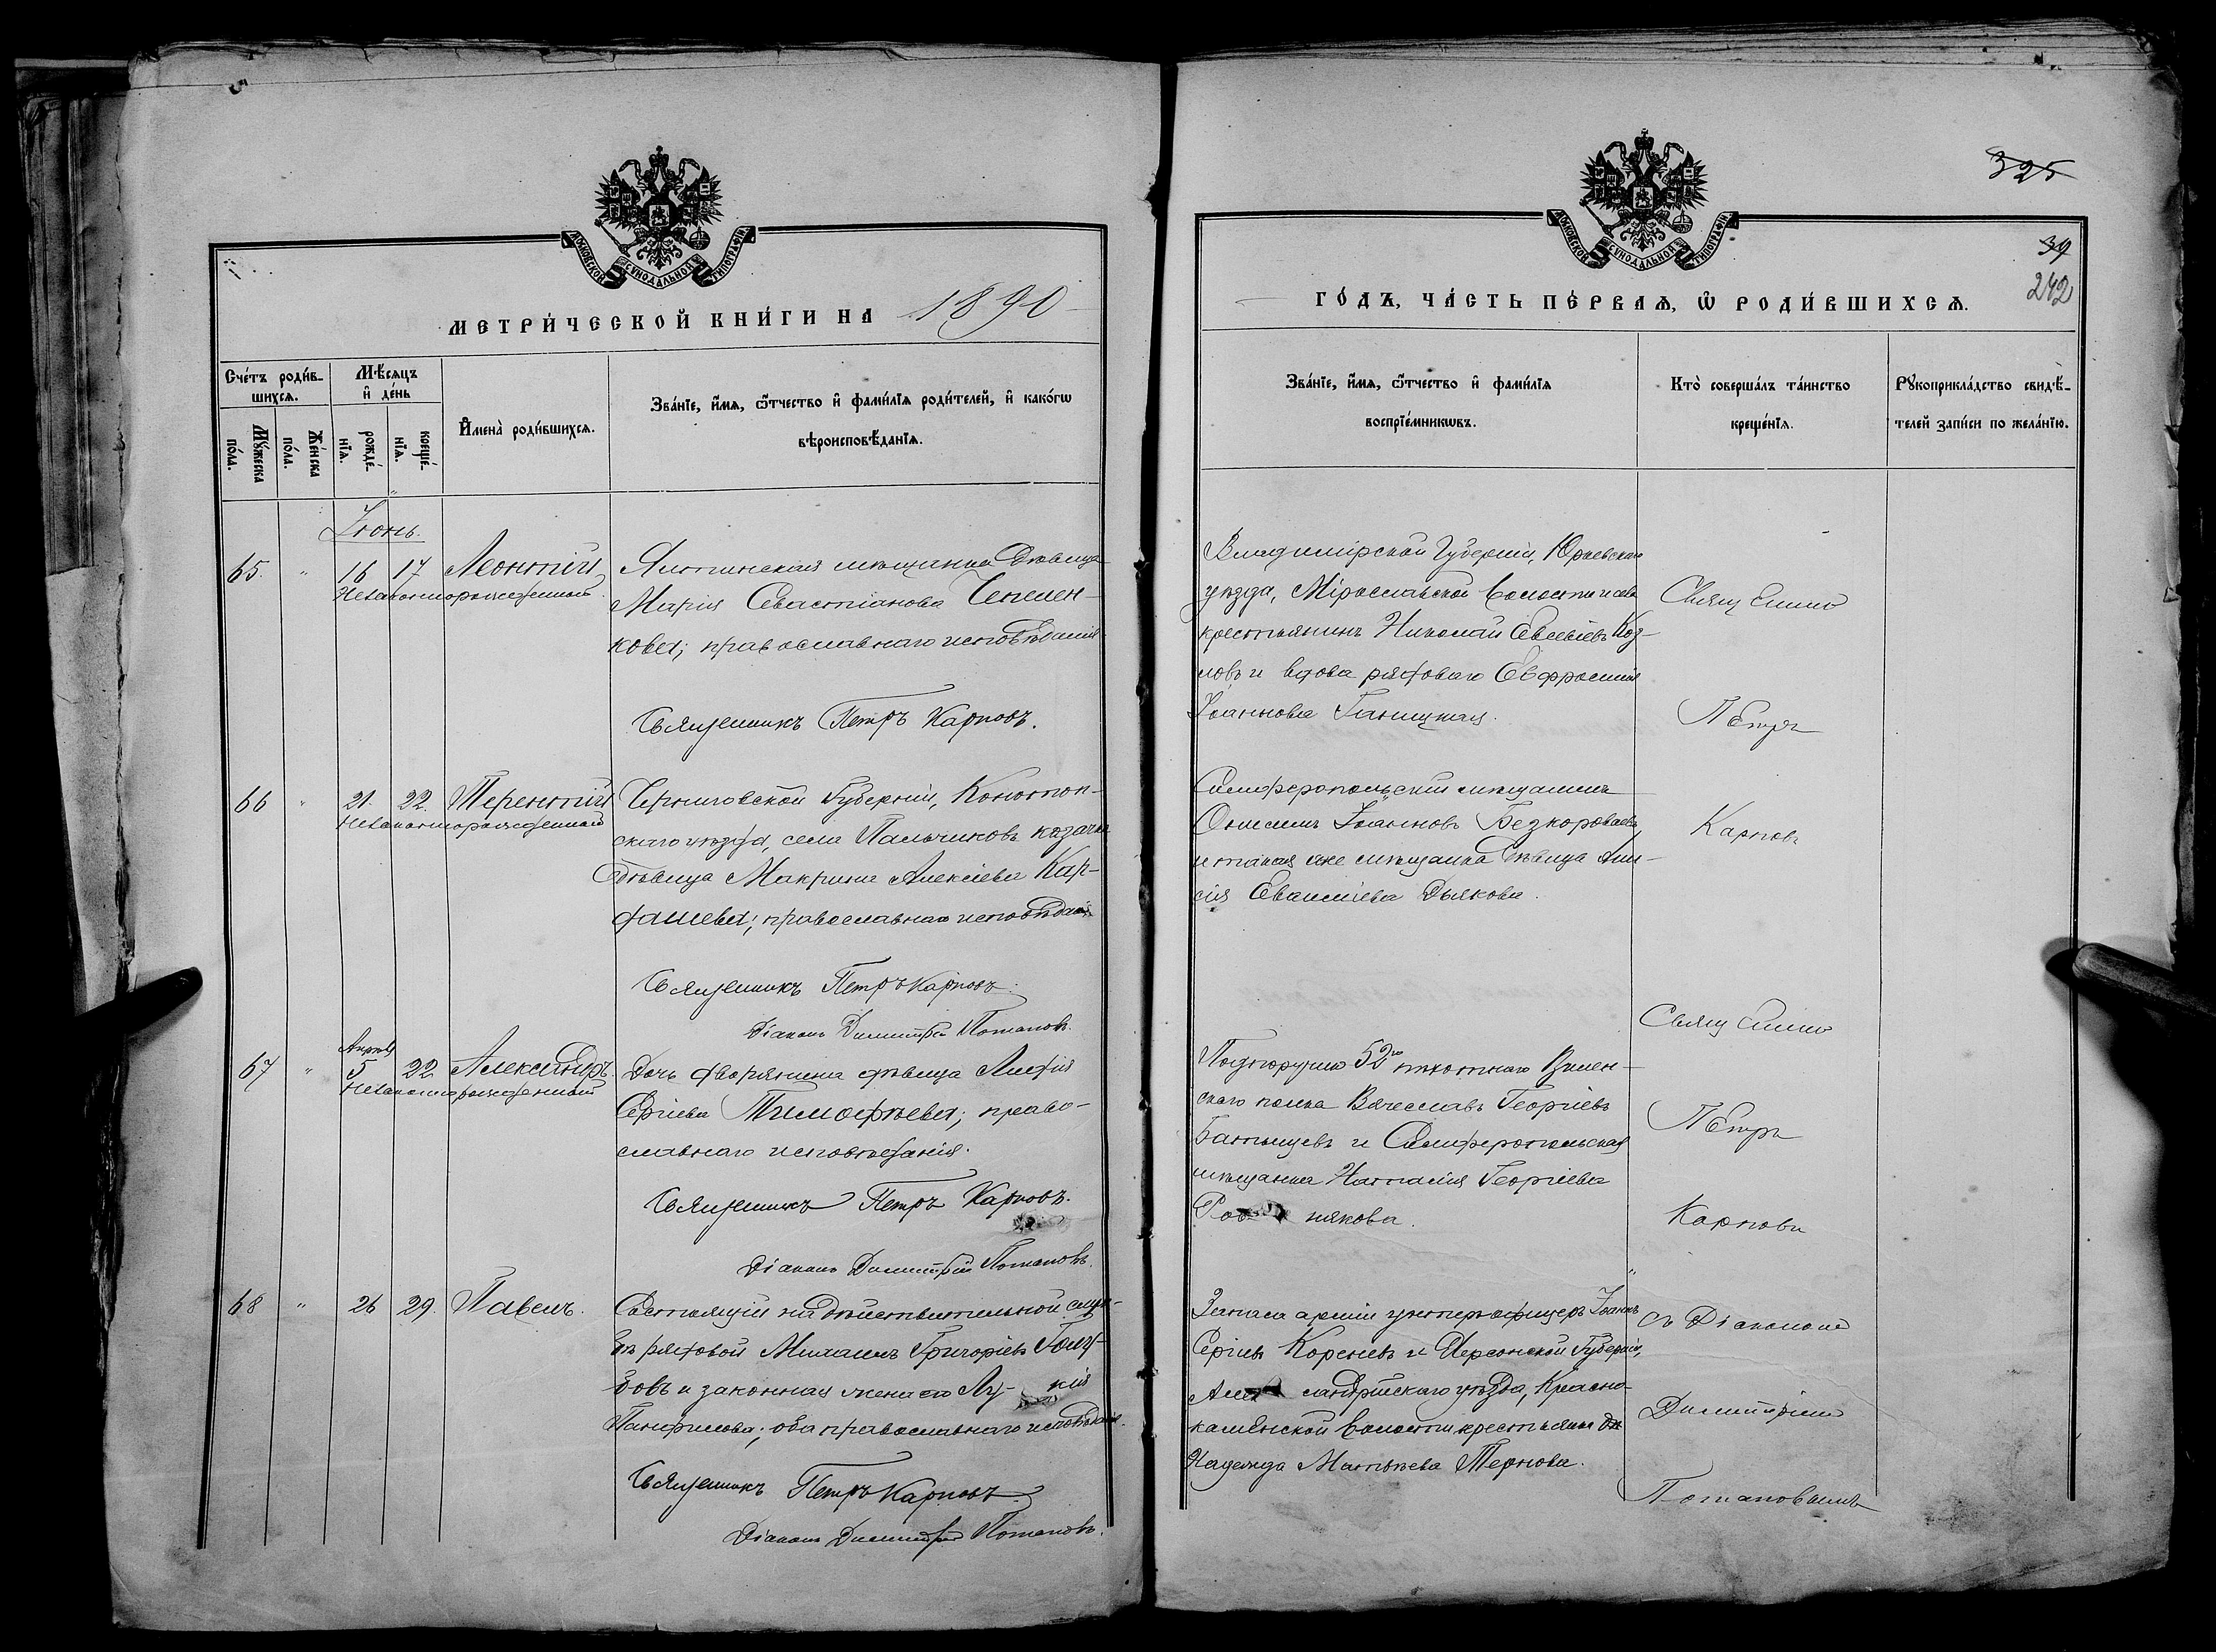 МОСКОВСКОЙ СѴНОДАЛЬНОЙ ТИПОГРАФІИ
МЕТРИ́ЧЕСКОЙ КНИ́ГИ НА 1890
Сче́тъ роди́в-
шихсѧ.
Мѣ́сѧцъ
и҆ де́нь
Мꙋ́жеска
по́ла.
Же́нска
по́ла.
рожде́-
нїѧ.
креще́-
нїѧ.
И҆мена̀ роди́вшихсѧ.
Зва́нїе, и҆́мѧ, ѻ҆́тчество и҆ фами́лїѧ роди́телей, и҆ како́гѡ
вѣроисповѣ́данїѧ.
Іюнь.
65. " 16 17 Леонтій
Незаконнорожденный
Ялтинская мѣщанка дѣвица
Марія Севастіанова Чепелен-
кова; православнаго исповѣданія
Священникъ Петръ Карповъ.
66 " 21. 22. Терентій
Незаконнорожденный
Черниговской Губерніи, Конотоп-
скаго уѣзда, села Пальчиковъ козачка
дѣвица Макрина Алексіева Кар-
дашева; православнаго исповѣданія
Священникъ Петръ Карповъ.
Діаконъ Димитрій Потаповъ.
67 " Апрѣля 5 22 Александръ.
Незаконнорожденный
Дочь дворянина дѣвица Лидія
Сергіева Тимофѣева; право-
славнаго исповѣданія.
Священникъ Петръ Карповъ.
Діаконъ Димитрій Потаповъ.
68 " 26 29. Павелъ.
Состоящій на дѣйствительной служ-
бѣ рядовой Михаилъ Григоріевъ Голу-
бовъ и законная жена его Лу- кія
Панфилова; оба православнаго исповѣданія.
Священникъ Петръ Карповъ.
Діаконъ Димитрій Потаповъ.
325
МОСКОВСКОЙ СѴНОДАЛЬНОЙ ТИПОГРАФІИ
39
242
ГО́ДЪ, ЧА́СТЬ ПЕ́РВАѦ, Ѡ҆ РОДИ́ВШИХСѦ.
Зва́нїе, и҆́мѧ, ѻ҆́тчество и҆ фами́лїѧ
воспрїе́мникѡвъ.
Кто̀ соверша́лъ та́инство
креще́нїѧ.
Рꙋкоприкла́дство свидѣ́-
телей за́писи по жела́нїю.
Владимірской Губерніи, Юрьевскаго
уѣзда, Мірославской волости и села
крестьянинъ Николай Евсевіевъ Коз-
ловъ и вдова рядоваго Евфросинія
Іоаннова Ганицкая.
Священникъ
Петръ
Карповъ
Симферопольскій мѣщанинъ
Онисимъ Іоанновъ Безкороваевъ
и такая же мѣщанка дѣвица Ани-
сія Евампіева Дьякова.
Священникъ
Петръ
Карповъ
Подпоручикъ 52го пѣхотнаго Вилен-
скаго полка Вячеславъ Георгіевъ
Батышевъ и Симферопольская
мѣщанка Наталія Георгіева
някова.
Запаса арміи унтеръ офицеръ Іоаннъ
Сергіевъ Кореневъ и Херсонской Губерніи,
Алек сандрійскаго уѣзда, Красно-
каменской волости крестьянка дѣв
Надежда Матѳеева Тернова.
съ Діакономъ
Димитріемъ
Потаповымъ